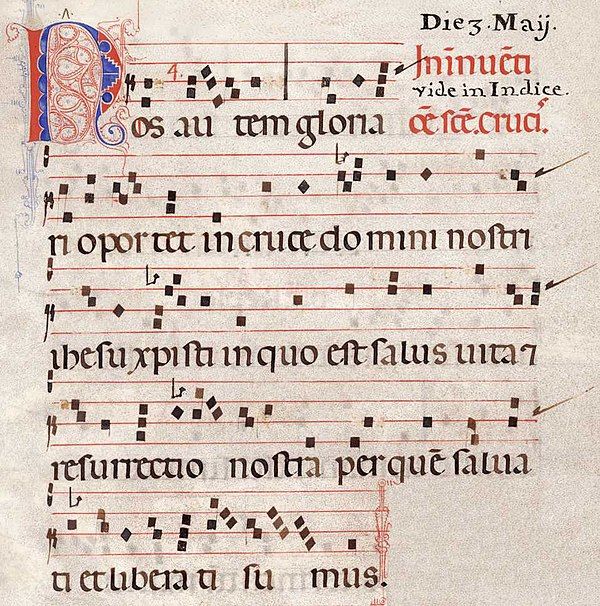 Die 3. Maij.
In īnuēti
vide in Indice.
Nos au tem gloria
ōe scē. cruci⁹.
ri opor tet in cruce do mini nostri
ihesu xpisti in quo est salus uita ⁊
resurrectio nostra per quē salua
ti et libera ti su mus.